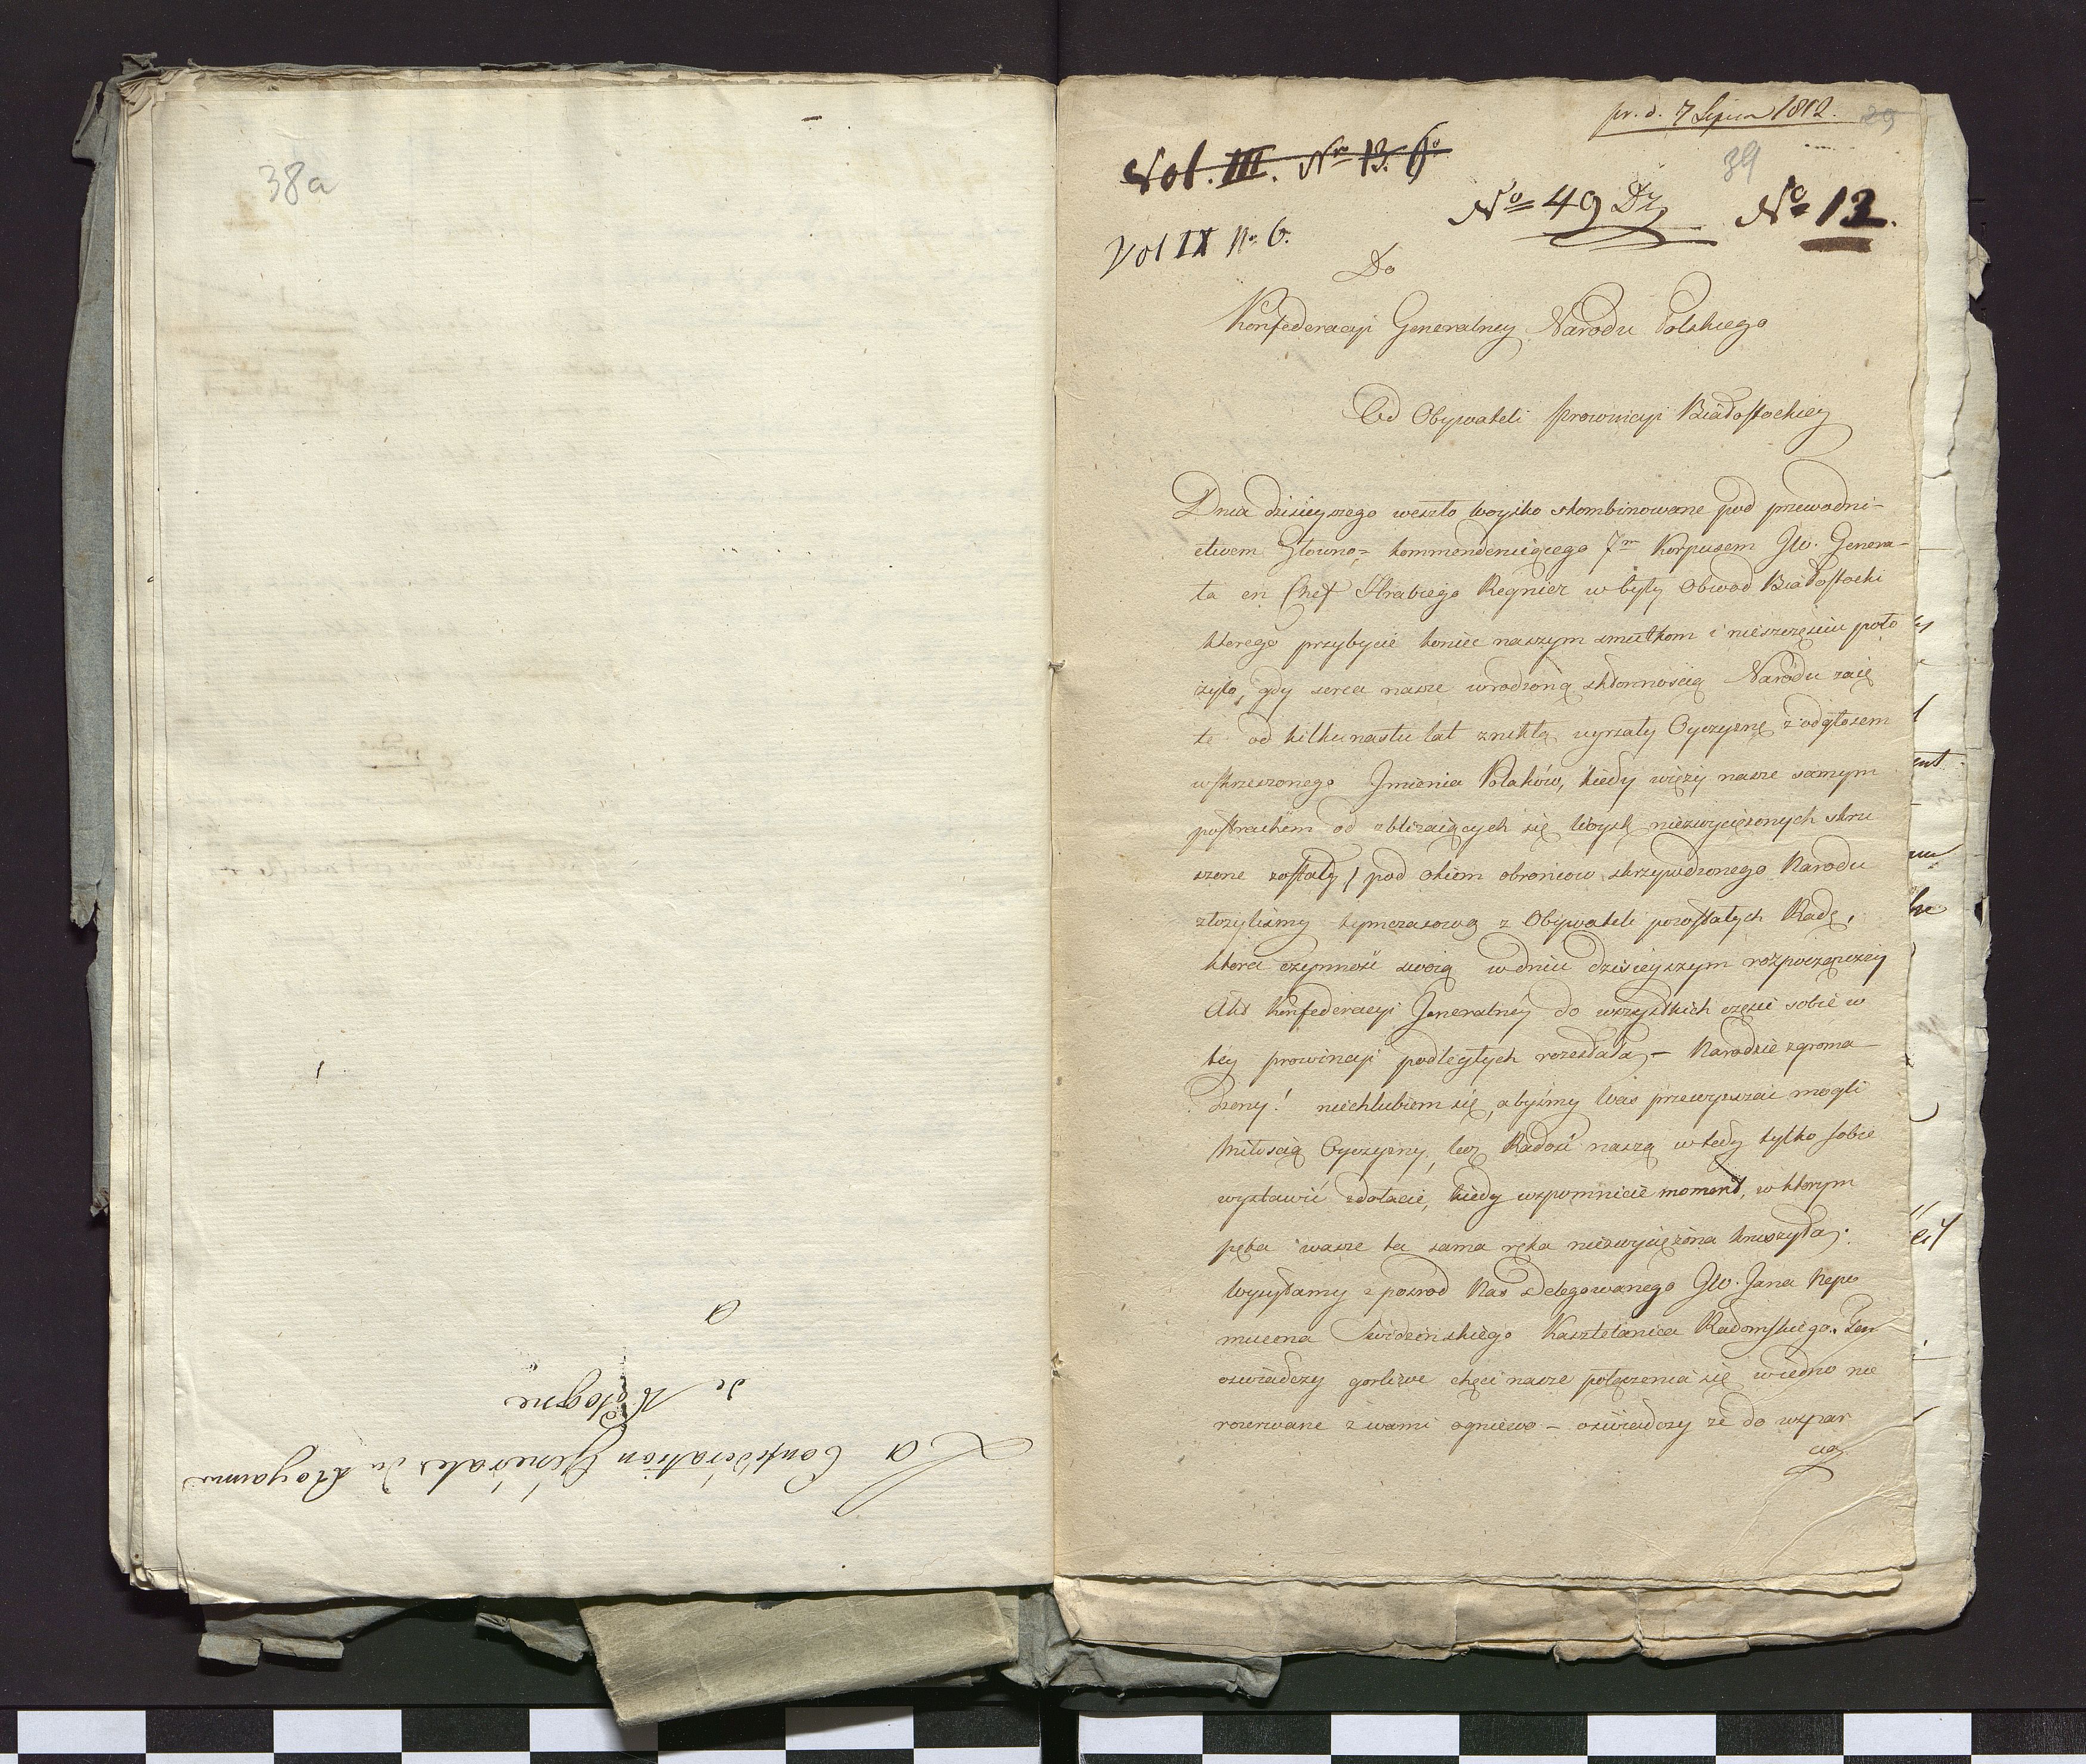 38a
A
La Confédération Générale du Royaume
de Pologne
pr. d. 7 Lipca 1812.
39
Vol. III. Nro 13. 6o
39
No 49 Dz
No 12.
Vol IX No 6.
Do
Konfederacyi Generalney Narodu Polskiego
Od Obywateli prowincyi Białostockiey
Dnia dzisieyszego weszło woysko skombinowane pod przewodni-
ctwem Głowno= kommenderuiącego 7m Korpusem JW. Genera-
ła en Chef Hrabiego Regnier w były Obwod Białostocki
którego przybycie koniec naszym smutkom i nieszczęściu poło
żyło, gdy serca nasze wrodzoną skłonnością Narodu zaię
te od kilkunastu lat znikłą uyrzały Oyczyznę z odgłosem
wskrzeszonego Jmienia Polaków, kiedy więzy nasze samym
postrachem od zbliżaiących się Woysk niezwyciężonych skru
szone zostały, pod okiem obrońcow skrzywdzonego Narodu
złożyliśmy tymczasową z Obywateli pozostałych Radę,
ktora czynność swoią w dniu dzisieyszym rozpocząwszy
Akt Konfederacyi Generalney do wszystkich części sobie w
tey prowincyi podległych rozesłała, – Narodzie zgroma-
dzony! niechlubiem się, abyśmy Was przewyższać mogli
miłością Oyczyzny, lecz Radość naszą wtedy tylko sobie
wystawić zdołacie, kiedy wspomnicie moment, w ktorym
pęta wasze ta sama ręka niezwyciężona kruszyła.
Wysyłamy z pośrod Nas Delegowanego JW. Jana Nepo
mucena Swidzińskiego Kasztelanica Radomskiego. Ten
oświadczy gorliwe chęci nasze połączenia się w iedno nie
rozerwane z wami ogniwo – oświadczy że do wspar
cia